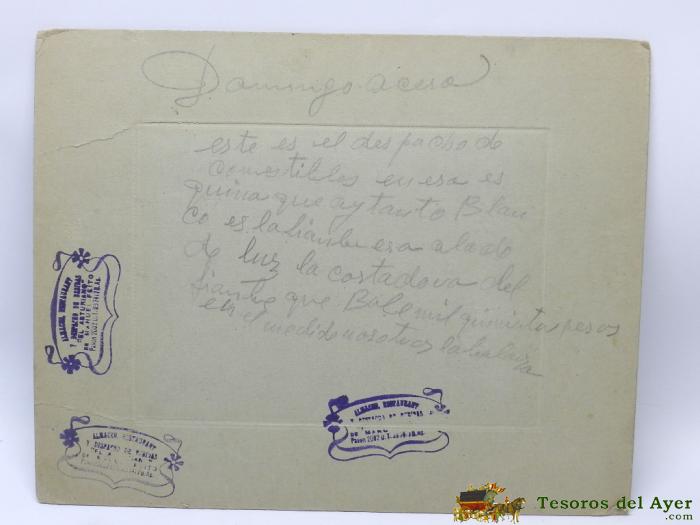 Domingo acera
este es el despacho de
comestibles en esa es
quina que ay tanto Blan
co es la fianbrera alado
de luz la costadora del
fianbre que Bale mil quinientos pesos
en el medio nosotros la balanza
ALMACEN, RESTAURANT
Y DESPACHO DE BEBIDAS
"EL ASTURIANO"
ALMACEN, RESTAURANT
Y DESPACHO DE BEBIDAS
ALMACEN, RESTAURANT
Tesoros del Ayer
.com